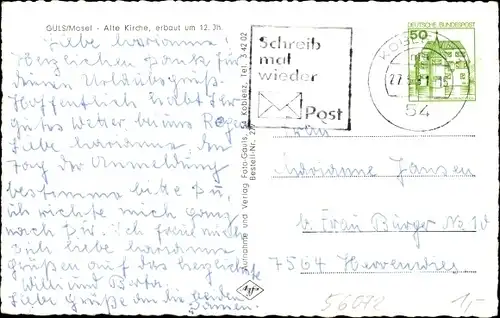 GÜLS/Mosel - Alte Kirche, erbaut um 12. Jh.
Liebe Marianne!
Herzeichen Dank für
deinen Urlaubsgruß.
Hoffentlich habt Ihr
gutes Wetter
Liebe Marianne, den
Tag der Anmeldung
bestimme bitte Du,
ich richte mich ganz
nach Dir. Ich freue mich
Liebe Marianne
grüßen auf das herzlichste
Willi und Berta.
Liebe Grüße an die beiden
Damen.
Aufnahme und Verlag Foto-Gauls, 54 Koblenz, Tel. 3 42 02
Bestell-Nr.
Schreib
mal
wieder
Post
DEUTSCHE BUNDESPOST
50
54
Frau
Marianne Jansen
b. Frau Bürger No 10
7564
56072
1,-